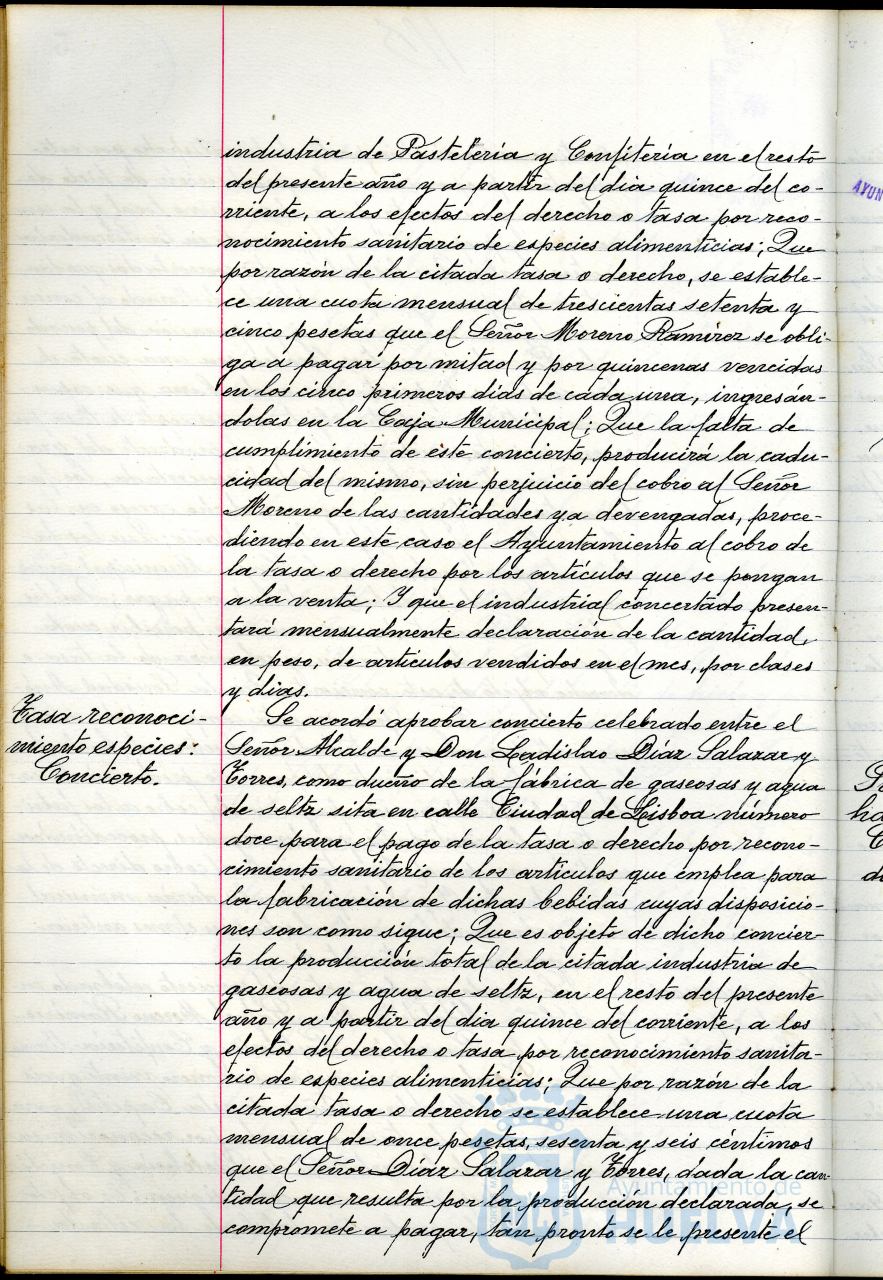 industria de Pastelería y Confitería en el resto
del presente año y a partir del dia quince del co-
rriente, a los efectos del derecho o tasa por reco-
nocimiento sanitario de especies alimenticias; Que
por razón de la citada tasa o derecho, se estable-
ce una cuota mensual de trescientas setenta y
cinco pesetas que el Señor Moreno Ramírez se obli-
ga a pagar por mitad y por quincenas vencidas
en los cinco primeros días de cada una, ingresán-
dolas en la Caja Municipal; Que la falta de
cumplimiento de este concierto, producirá la cadu-
cidad del mismo, sin perjuicio del cobro al Señor
Moreno de las cantidades ya devengadas, proce-
diendo en este caso el Ayuntamiento al cobro de
la tasa o derecho por los artículos que se pongan
a la venta; Y que el industrial concertado presen-
tará mensualmente declaración de la cantidad,
en peso, de artículos vendidos en el mes, por clases
y dias.
Tasa reconoci-
miento especies:
Concierto.
Se acordó aprobar concierto celebrado entre el
Señor Alcalde y Don Ladislao Díaz Salazar y
Torres, como dueño de la fábrica de gaseosas y agua
de seltz sita en calle Ciudad de Lisboa número
doce para el pago de la tasa o derecho por recono-
cimiento sanitario de los artículos que emplea para
la fabricación de dichas bebidas cuyas disposicio-
nes son como sigue; Que es objeto de dicho concier-
to la producción total de la citada industria de
gaseosas y agua de seltz, en el resto del presente
año y a partir del dia quince del corriente, a los
efectos del derecho o tasa por reconocimiento sanita-
rio de especies alimenticias; Que por razón de la
citada tasa o derecho se establece una cuota
mensual de once pesetas, sesenta y seis céntimos
que el Señor Díaz Salazar y Torres, dada la can-
tidad que resulta por la producción declarada, se
compromete a pagar, tan pronto se le presente el
Ayuntamiento de
HUELVA
AYUN